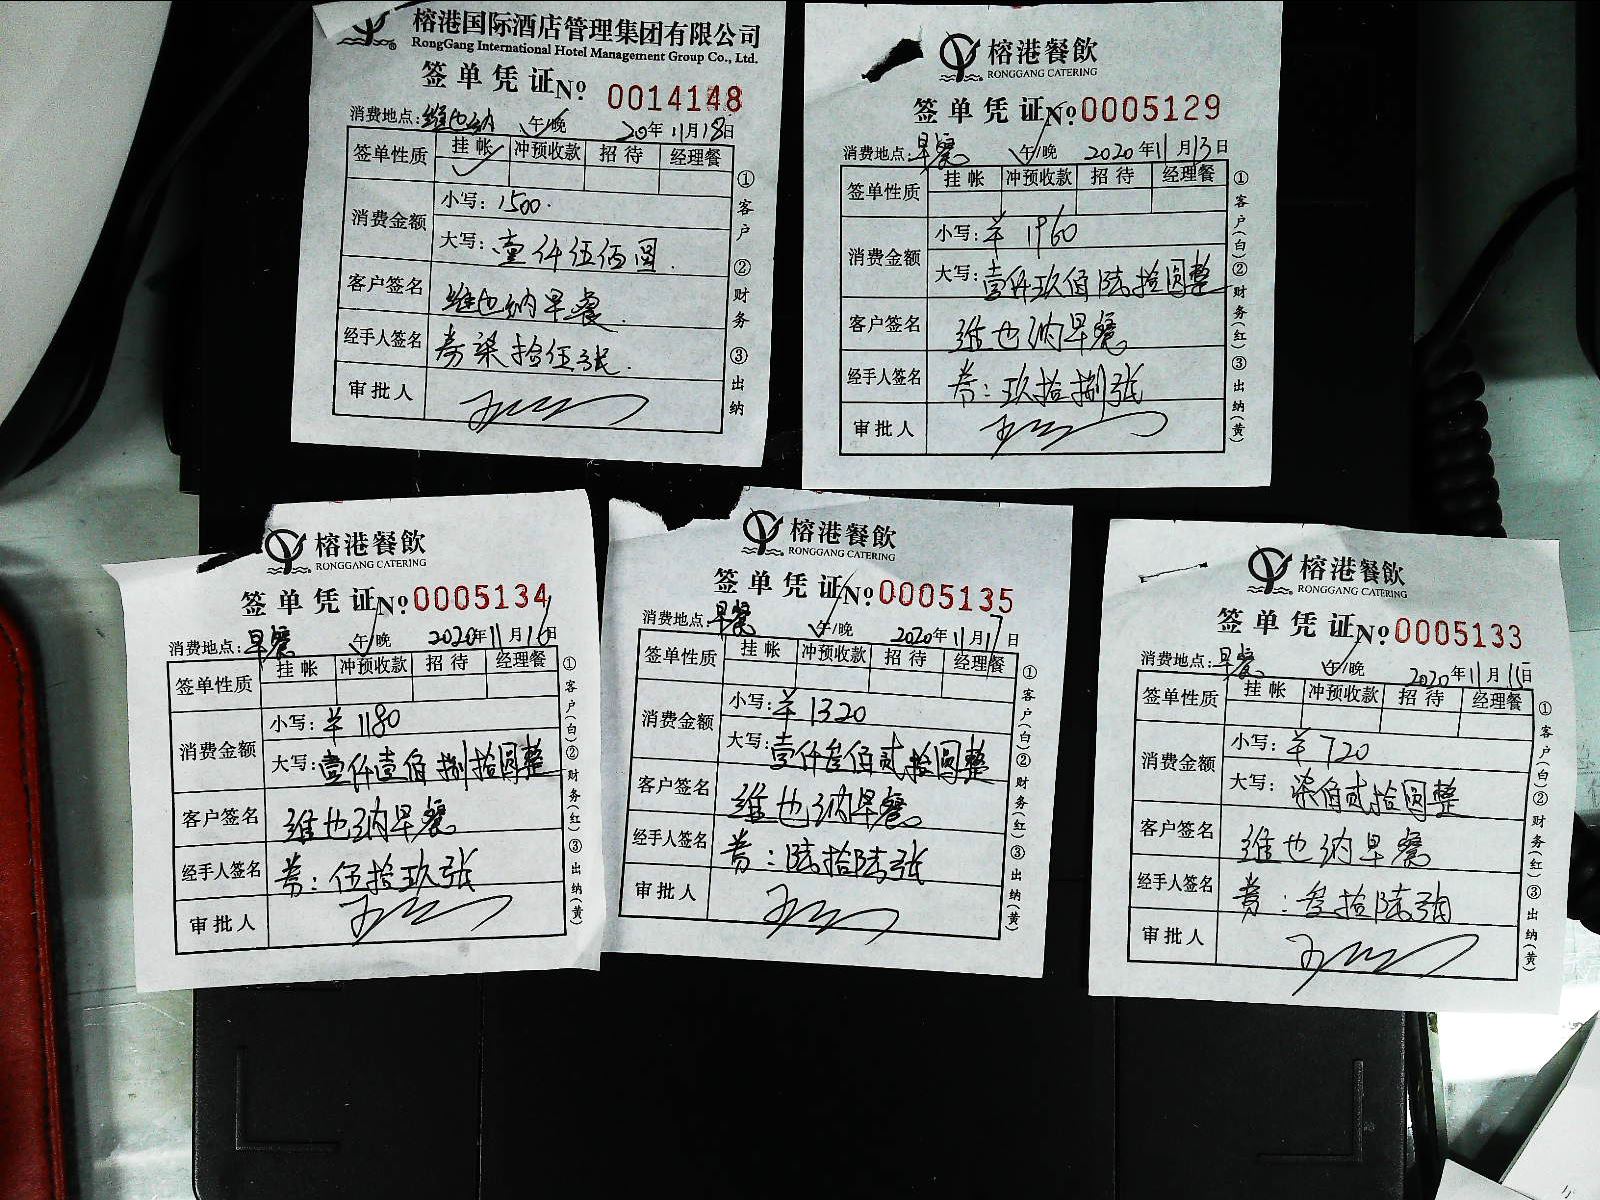 榕港国际酒店管理集团有限公司
RongGang International Hotel Management Group Co., Ltd.
签单凭证 № 0014148
消费地点：维也纳 午/晚 20年11月18日
签单性质 挂帐 冲预收款 招待 经理餐
消费金额 小写：1500.
大写：壹仟伍佰圆.
客户签名 维也纳早餐.
经手人签名 券柒拾伍张.
审批人
①客户 ②财务 ③出纳
榕港餐飲
RONGGANG CATERING
签单凭证 №0005129
消费地点：早餐 午/晚 2020年11月13日
签单性质 挂帐 冲预收款 招待 经理餐
消费金额 小写：¥ 1960
大写：壹仟玖佰陆拾圆整
客户签名 维也纳早餐
经手人签名 券：玖拾捌张
审批人
①客户(白)②财务(红)③出纳(黄)
榕港餐飲
RONGGANG CATERING
签单凭证 №0005134
消费地点：早餐 午/晚 2020年11月16日
签单性质 挂帐 冲预收款 招待 经理餐
消费金额 小写：¥ 1180
大写：壹仟壹佰捌拾圆整
客户签名 维也纳早餐
经手人签名 券：伍拾玖张
审批人
①客户(白)②财务(红)③出纳(黄)
榕港餐飲
RONGGANG CATERING
签单凭证 №0005135
消费地点：早餐 午/晚 2020年11月17日
签单性质 挂帐 冲预收款 招待 经理餐
消费金额 小写：¥ 1320
大写：壹仟叁佰贰拾圆整
客户签名 维也纳早餐
经手人签名 券：陆拾陆张
审批人
①客户(白)②财务(红)③出纳(黄)
榕港餐飲
RONGGANG CATERING
签单凭证 №0005133
消费地点：早餐 午/晚 2020年11月15日
签单性质 挂帐 冲预收款 招待 经理餐
消费金额 小写：¥ 720
大写：柒佰贰拾圆整
客户签名 维也纳早餐
经手人签名 券：叁拾陆张
审批人
①客户(白)②财务(红)③出纳(黄)